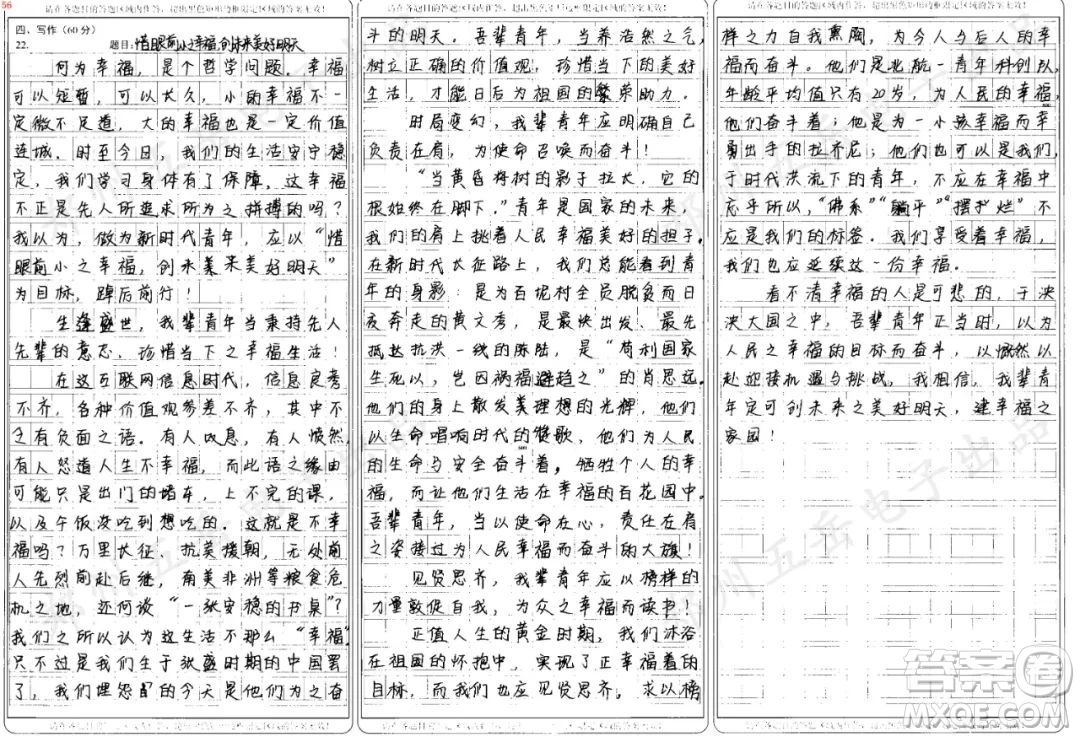 56
请在各题目的答题区域内作答，超出黑色矩形边框限定区域的答案无效！
四、写作（60分）
22.
题目：惜眼前小之幸福，创未来美好明天
何为幸福，是个哲学问题。幸福
可以短暂，可以长久，小的幸福不一
定微不足道，大的幸福也是一定价值
连城。时至今日，我们的生活安宁稳
定，我们学习身体有了保障。这幸福
不正是先人所追求所为之拼搏的吗？
我以为，做为新时代青年，应以“惜
眼前小之幸福，创未来美好明天”
为目标，踔后前行！
生逢盛世，我辈青年当秉持先人
先辈的意志，珍惜当下之幸福生活！
在这互联网信息时代，信息良莠
不齐，各种价值观参差不齐，其中不
乏有负面之语。有人叹息，有人愤然，
有人怒道人生不幸福，而此语之缘由
可能只是出门的堵车，上不完的课，
以及午饭没吃到想吃的。这就是不幸
福吗？万里长征、抗美援朝，无处前
人先烈前赴后继，南美非洲等粮食危
机之地，还何谈“一张安稳的书桌”？
我们之所以认为这生活不那么“幸福”
只不过是我们生于张盛时期的中国罢
了，我们埋怨的今天是他们为之奋
请在各题目的答题区域内作答，超出黑色矩形边框限定区域的答案无效！
请在各题目的答题区域内作答，超出黑色矩形边框限定区域的答案无效！
斗的明天。吾辈青年，当养浩然之气，
树立正确的价值观，珍惜当下的美好
生活，才能日后为祖国的繁荣助力。
时局变幻，我辈青年应明确自己
负责在肩，为使命召唤而奋斗！
“当黄昏将树的影子拉长，它的
根始终在脚下。”青年是国家的未来，
我们的肩上挑着人民幸福美好的担子。
在新时代长征路上，我们总能看到青
年的身影：是为百坭村全员脱贫而日
夜奔走的黄文秀，是最快出发、最先
抵达抗洪一线的陈陆，是“苟利国家
生死以，岂因祸福避趋之”的肖思远。
他们的身上散发美理想的光辉，他们
以生命唱响时代的赞歌，他们为人民
的生命与安全奋斗着，牺牲个人的幸
福，而让他们生活在幸福的百花园中。
吾辈青年，当以使命在心，责任在肩
之姿接过为人民幸福而奋斗的大旗！
见贤思齐，我辈青年应以榜样的
力量敦促自我，为众之幸福而读书！
正值人生的黄金时期，我们沐浴
在祖国的怀抱中，实现了正幸福着的
目标，而我们也应见贤思齐。求以榜
请在各题目的答题区域内作答，超出黑色矩形边框限定区域的答案无效！
请在各题目的答题区域内作答，超出黑色矩形边框限定区域的答案无效！
样之力自我熏陶，为今人与后人的幸
福而奋斗。他们是北航一青年科创队，
年龄平均值只有20岁，为人民的幸福，
他们奋斗着；他是为一小孩幸福而幸
勇出手的拉齐尼；他们也可以是我们，
于时代洪流下的青年，不应在幸福中
忘乎所以，“佛系”“躺平”“摆烂”不
应是我们的标签。我们享受着幸福，
我们也应延续这一份幸福。
看不清幸福的人是可悲的，于泱
泱大国之中，吾辈青年正当时，以为
人民之幸福的目标而奋斗，以慨然以
赴迎接机遇与挑战，我相信，我辈青
年定可创未来之美好明天，建幸福之
家园！
请在各题目的答题区域内作答，超出黑色矩形边框限定区域的答案无效！
郑州五岳电子出品
答案圈
MXQE.COM